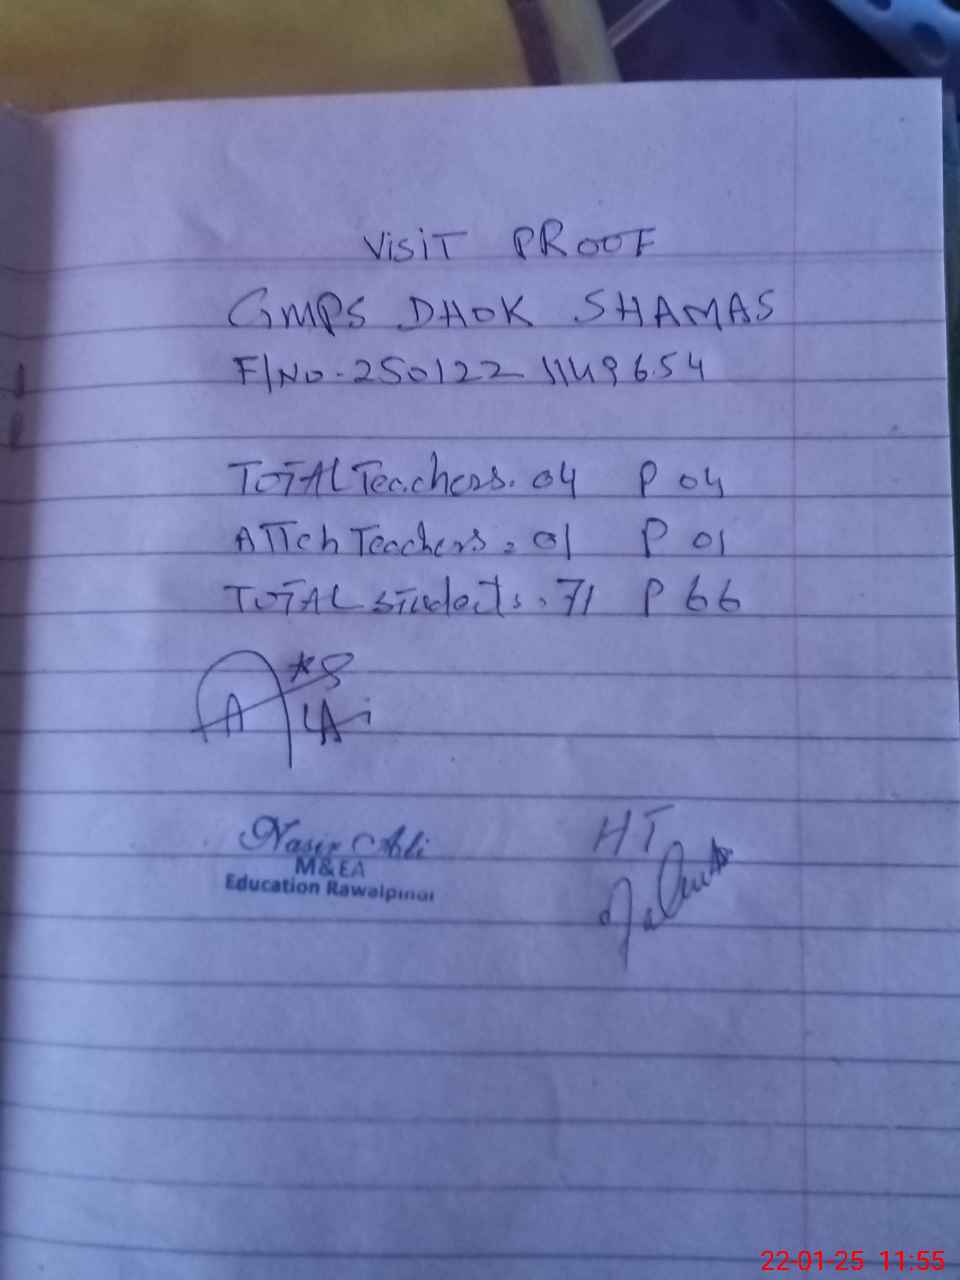 VISIT PROOF
GMPS DHOK SHAMAS
F/NO-250122 1149654
TOTAL Teachers. 04 P 04
ATTch Teachers. 01 P 01
TOTAL Students. 71 P 66
Nasir Ali
M&EA
Education Rawalpindi
HT
22-01-25 11:55